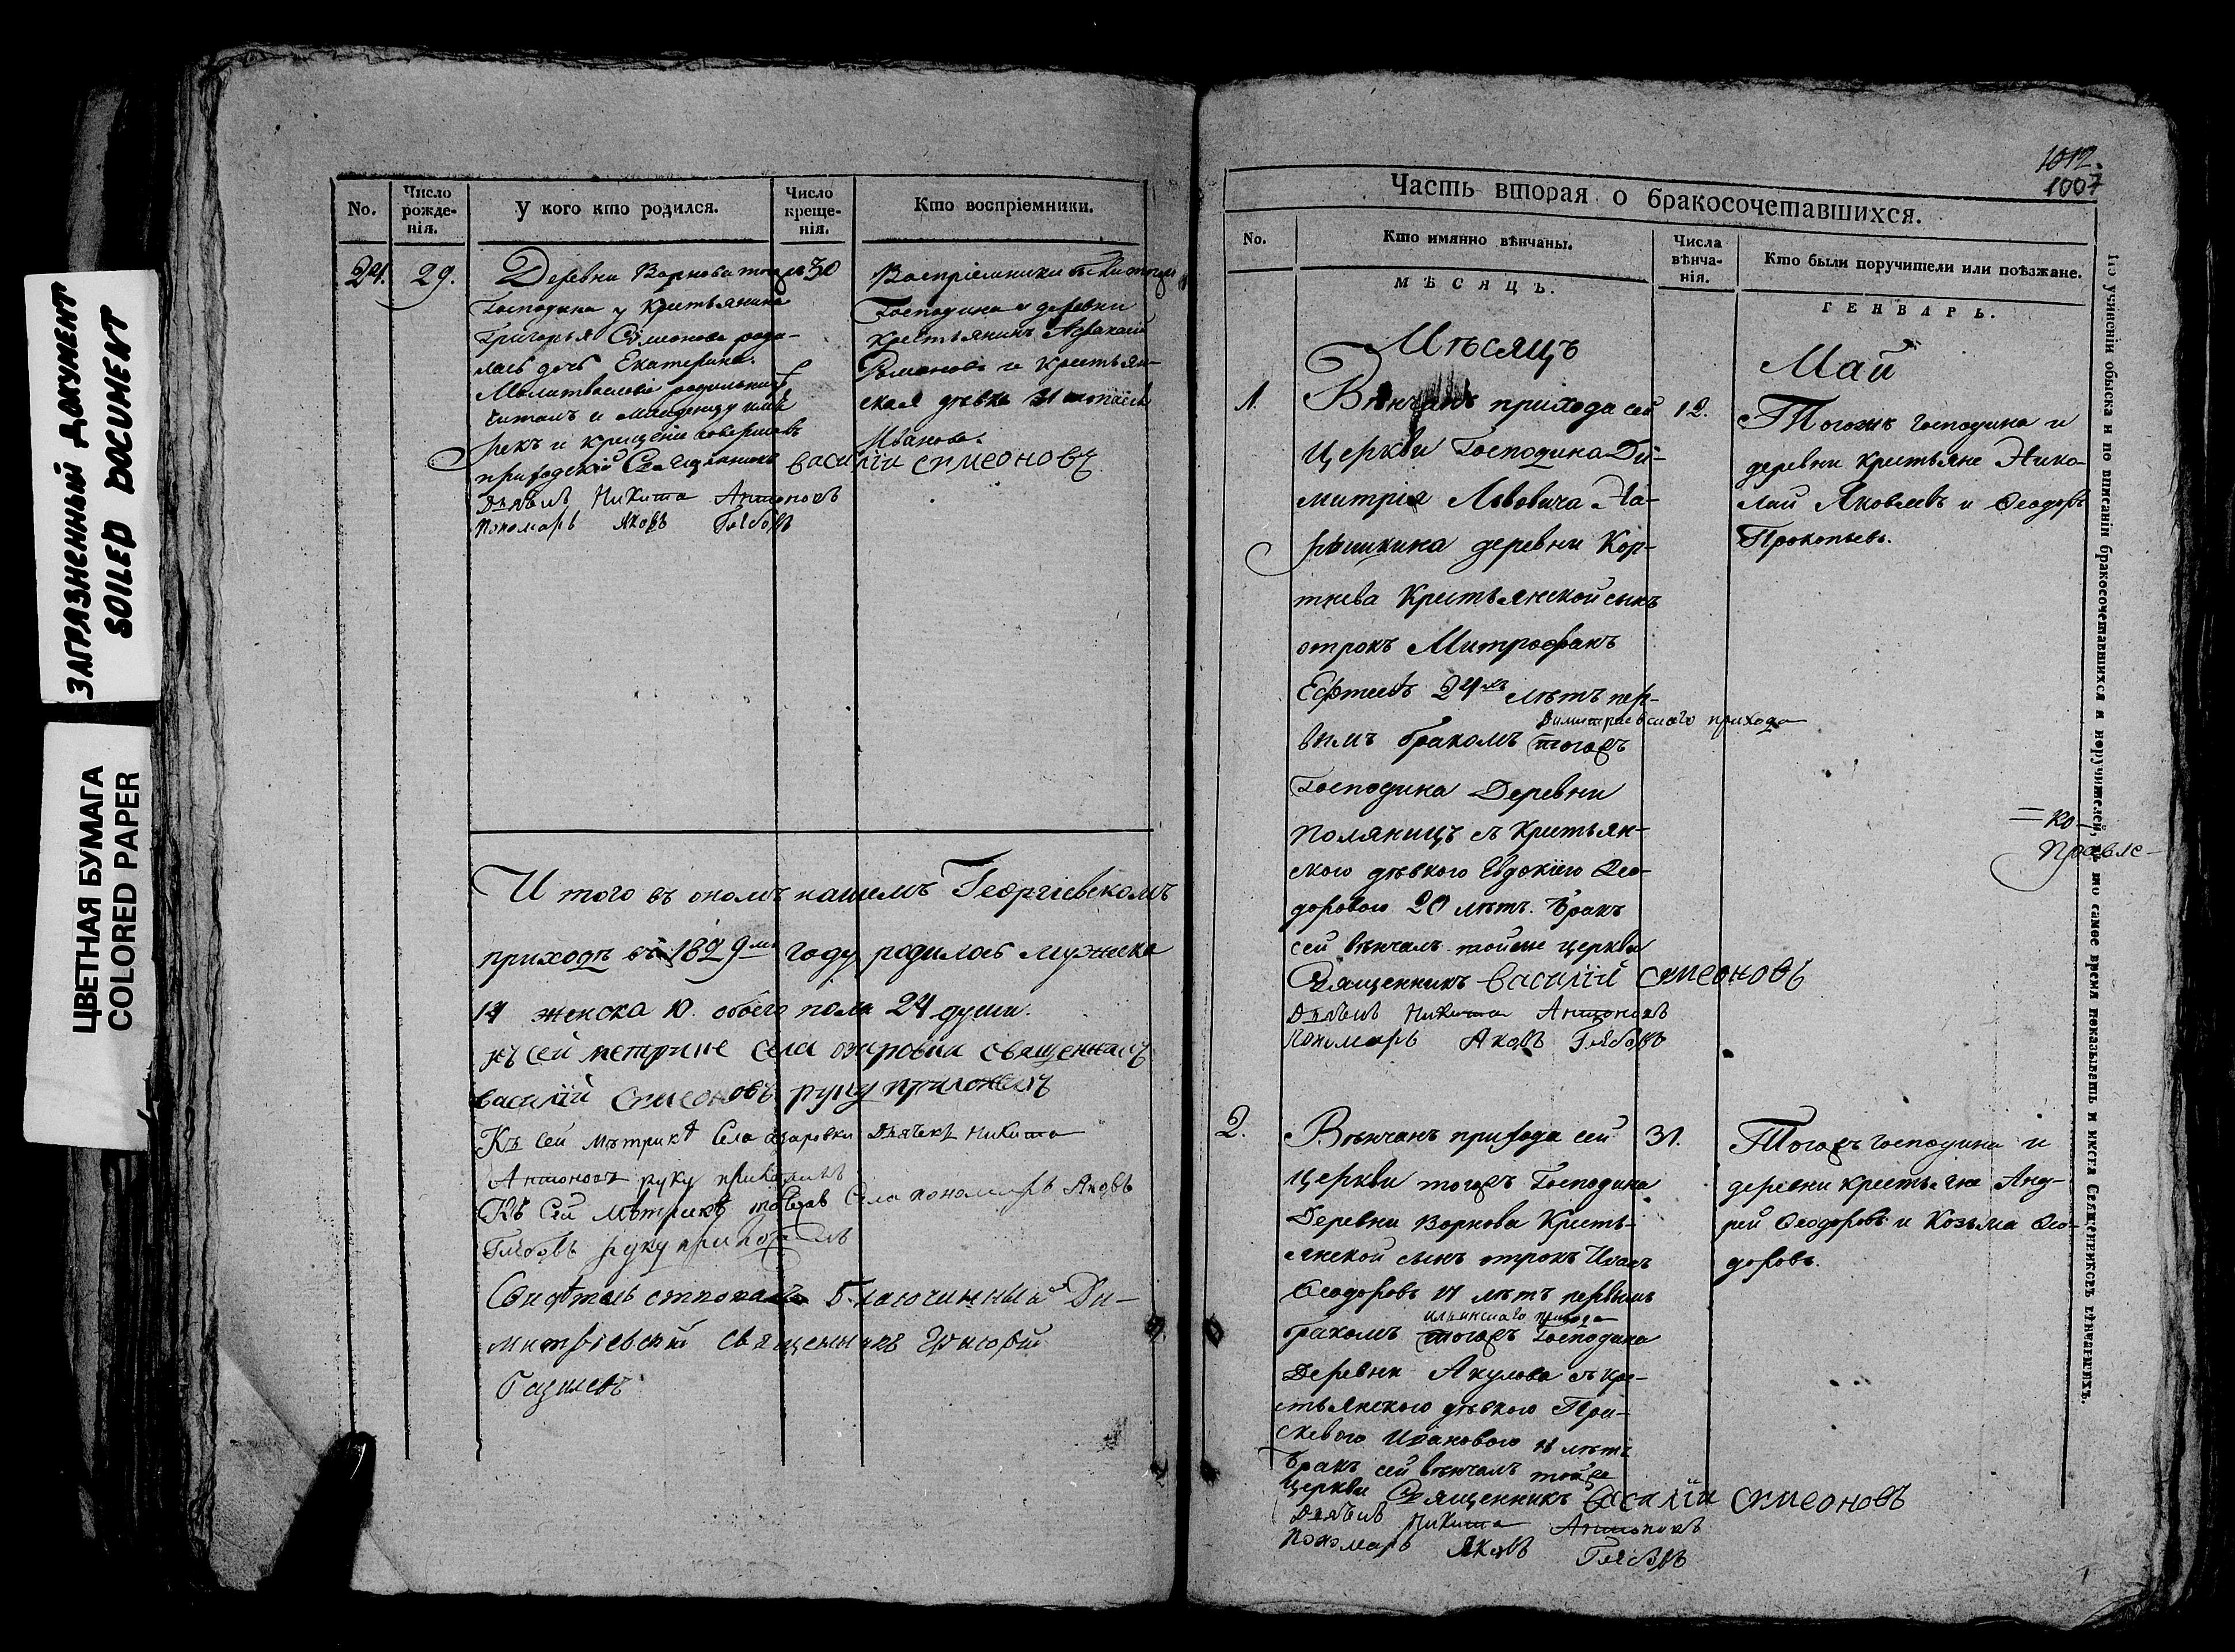 ЗАГРЯЗНЕННЫЙ ДОКУМЕНТ
SOILED DOCUMENT
ЦВЕТНАЯ БУМАГА
COLORED PAPER
No.
Число рожденія.
У кого кто родился.
Число крещенія.
Кто воспріемники.
24. 29.
Деревни Ворнова тогожъ
Господина у крестьянина
Григорья Симионова роди-
лась дочь Екатерина.
Молитвословіе родильницѣ
читалъ и младенцу имя
рекъ и крещеніе совершалъ
приходскій Священникъ василій симеоновъ
Дьячекъ Никита Антоновъ
Пономарь Яковъ Глѣбовъ
30
Воспріемники были тогожъ
Господина и деревни
крестьянинъ
Романовъ и крестьян-
ская дѣвка
Иванова.
И того въ ономъ нашемъ Георгіевскомъ
приходѣ въ 1829мъ году родилось мужеска
14 женска 10. обоего пола 24 души.
къ сей метрике села озировки священникъ
василій симеоновъ руку приложилъ
Къ сей мѣтрикѣ Села азаровки Дьячекъ Никита
Антоновъ руку приложилъ
Къ Сей мѣтрикѣ тогожъ Села пономарь Яковъ
Глѣбовъ руку приложилъ
Благочинный Ди-
митріевскій священникъ Григорій
1012.
1007
Часть вторая о бракосочетавшихся.
No.
Кто имянно вѣнчаны.
Числа вѣнчанія.
Кто были поручители или поѣзжане.
МѢСЯЦЪ.
ГЕНВАРЬ.
Мѣсяцъ
Май
1.
Вѣнчанъ прихода сей
Церкви Господина Ди-
митрія Львовича На-
рышкина деревни Кор-
тнева Крестьянской сынъ
отрокъ Митрофанъ
24хъ лѣтъ пер-
Димитріевскаго прихода
вымъ бракомъ тогожъ
Господина Деревни
Поляницъ съ Крестьян-
скою дѣвкою Евдокіею Ѳео-
доровою 20 лѣтъ. Бракъ
сей вѣнчалъ тойже церкви
Священникъ василій симеоновъ
Дьячекъ Никита Антоновъ
Пономарь Яковъ Глѣбовъ
12.
Тогожъ господина и
деревни крестьяне Нико-
лай Яковлевъ и Ѳеодоръ
Прокопьевъ.
2.
Вѣнчанъ прихода сей
церкви тогожъ Господина
Деревни Ворнова Кресть-
янской сынъ отрокъ Иванъ
Ѳеодоровъ лѣтъ первымъ
ильинскаго прихода
бракомъ тогожъ Господина
Деревни Акулова съ кре-
стьянскою дѣвкою Пра-
сковею Ивановою 18 лѣтъ
Бракъ сей вѣнчалъ тойже
церкви Священникъ василій симеоновъ
Дьячекъ Никита Антоновъ
Пономарь Яковъ Глѣбовъ
31.
Тогожъ господина и
деревни крестьяне Анд-
рей Ѳеодоровъ и Козьма Ѳео-
доровъ.
По учиненіи обыска и по вписаніи бракосочетавшихся и поручителей, въ то самое время показывать и иксга Священникъ вѣнчавшихъ.